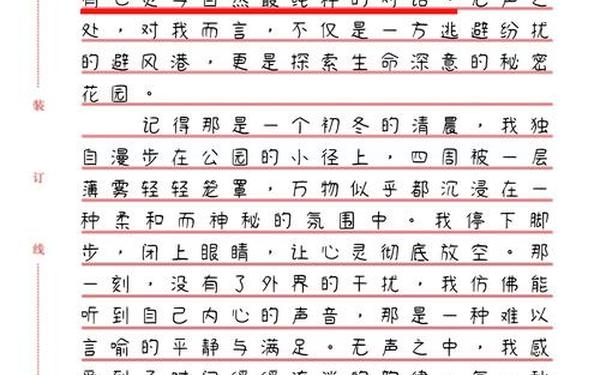 有心灵与自然最纯粹的对话。无声之
处，对我而言，不仅是一方逃避纷扰
的避风港，更是探索生命深意的秘密
花园。
记得那是一个初冬的清晨，我独
自漫步在公园的小径上，四周被一层
薄雾轻轻笼罩，万物似乎都沉浸在一
种柔和而神秘的氛围中。我停下脚
步，闭上眼睛，让心灵彻底放空。那
一刻，没有了外界的干扰，我仿佛能
听到自己内心的声音，那是一种难以
言喻的平静与满足。无声之中，我感
受到了时间缓缓流淌的韵律，每一种
装
订
线